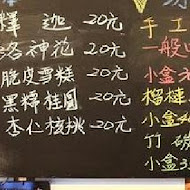 釋迦 20元
洛神花 20元
脆皮雪糕 20元
黑糯桂圓 20元
杏仁核桃 20元
手工
一般
小盒
榴槤
小盒
竹
小盒